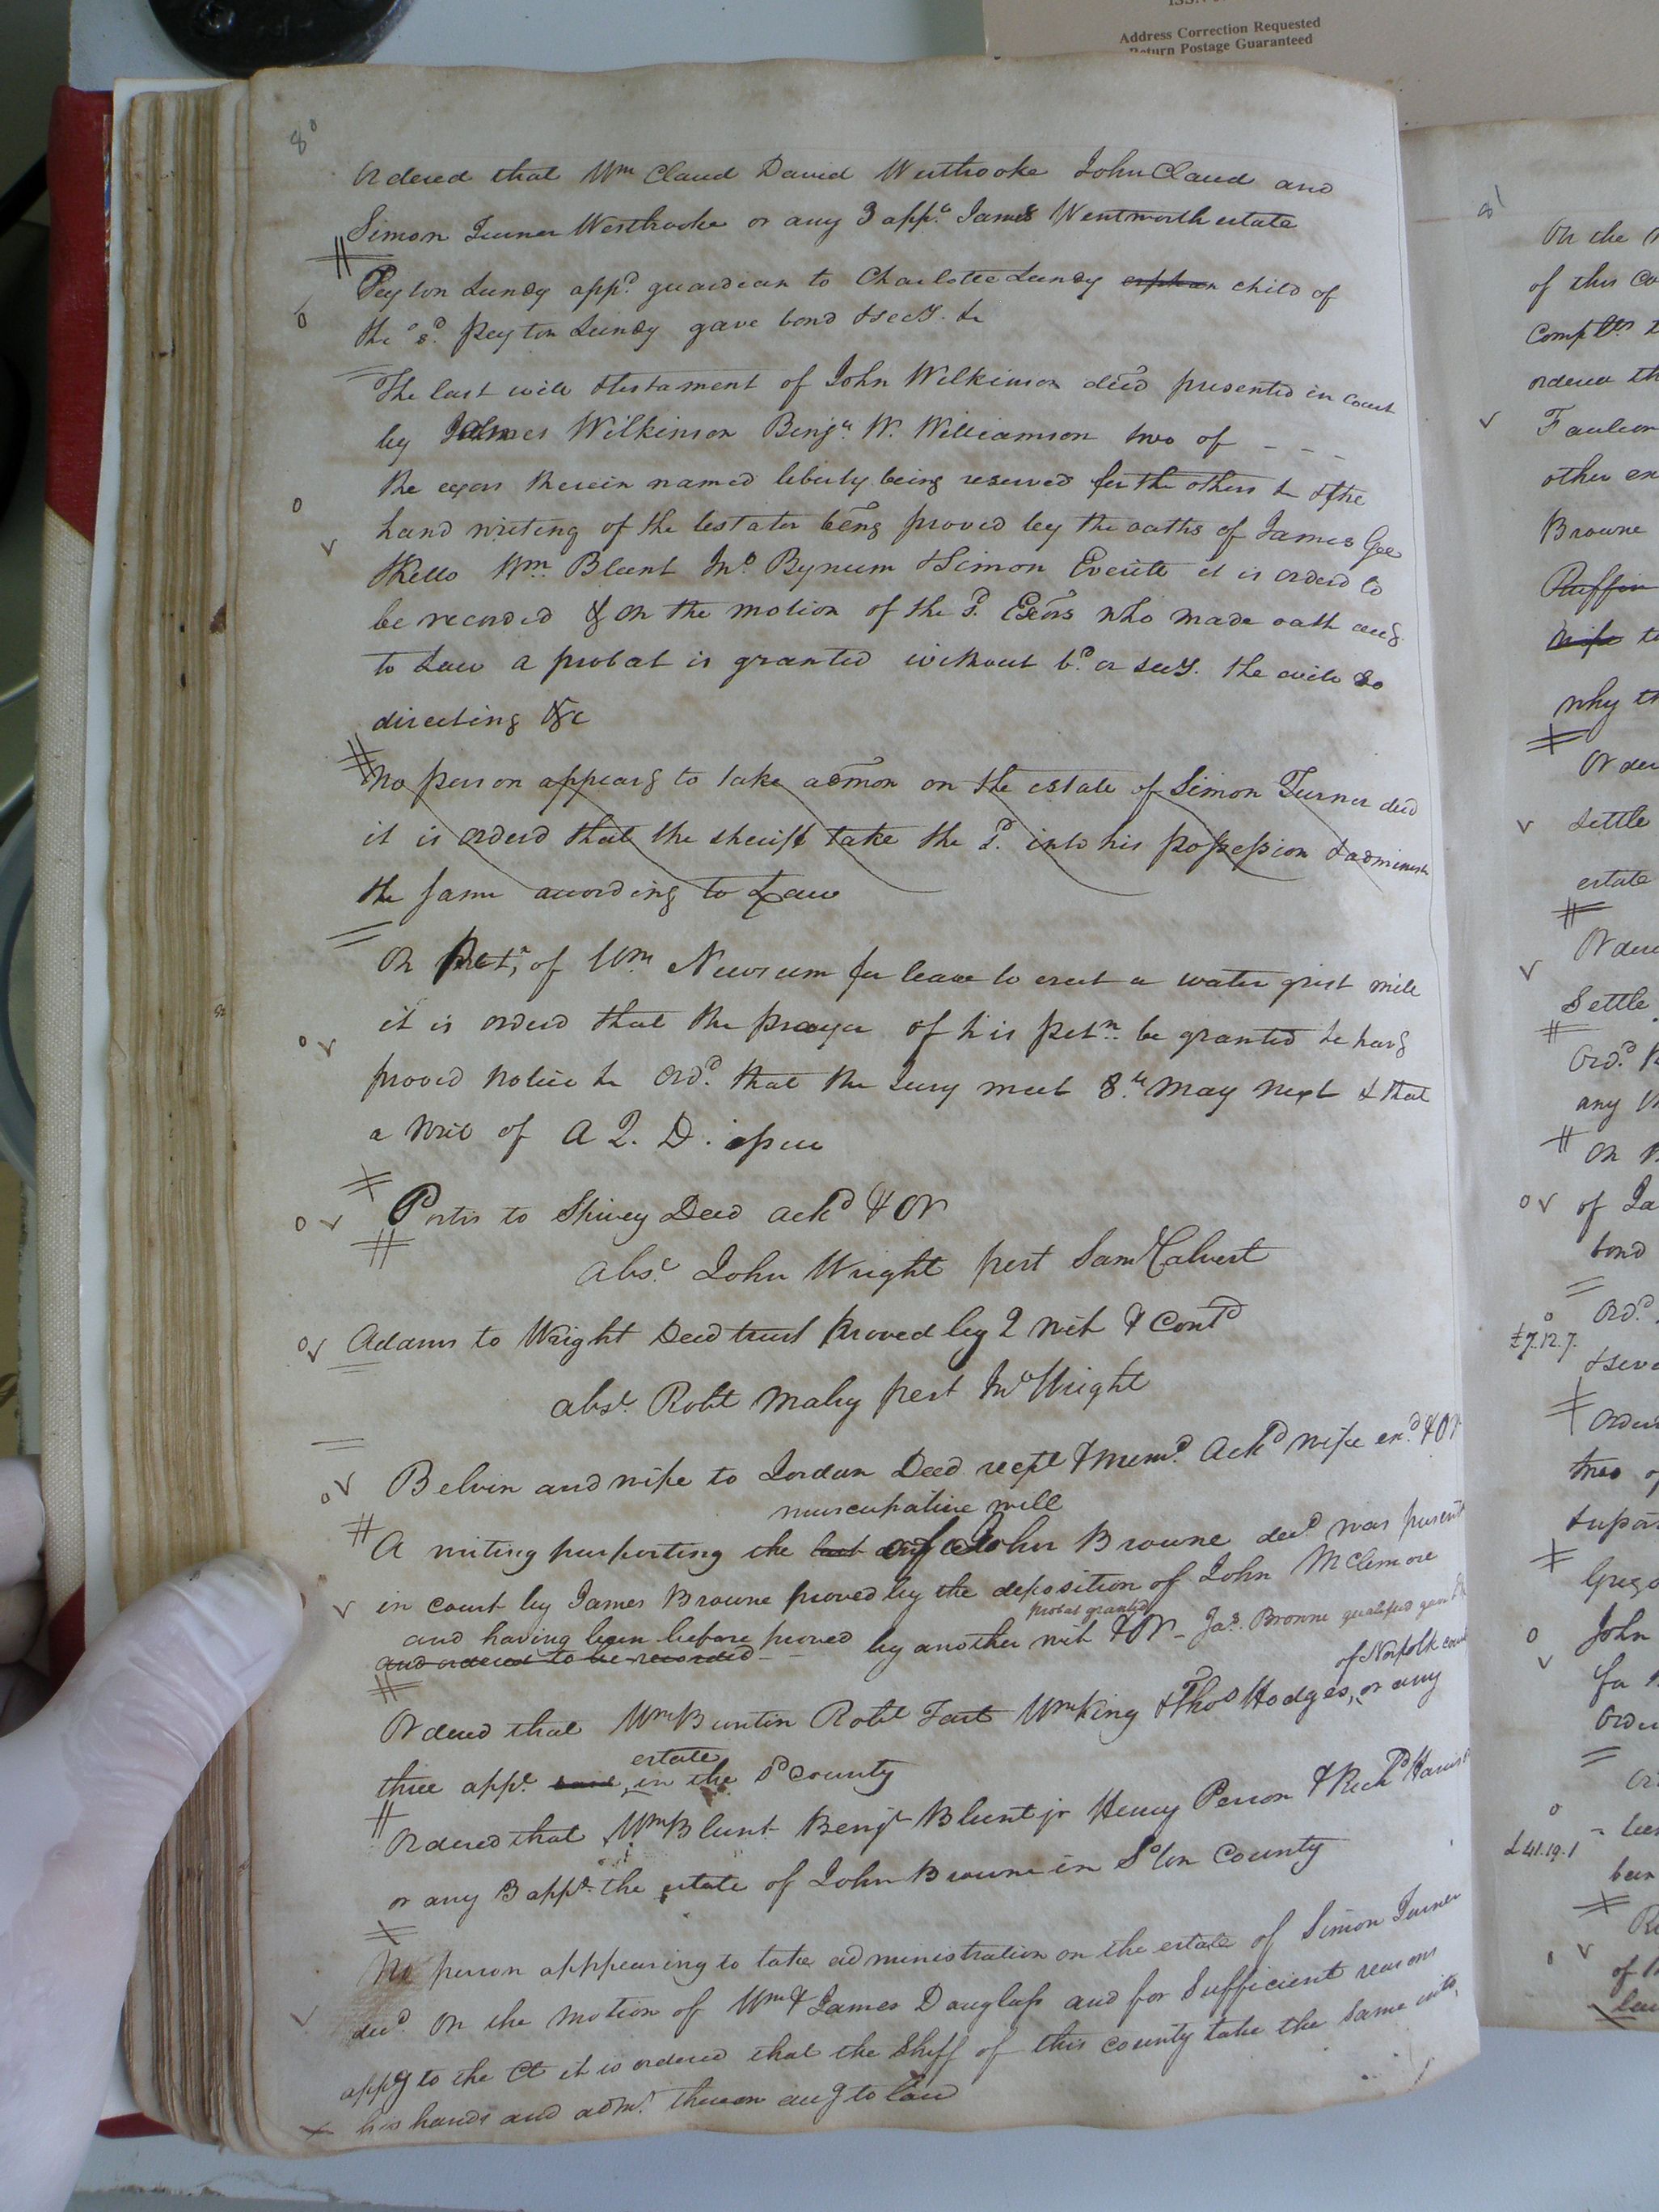 Address Correction Requested
Return Postage Guaranteed
80
Ordered that Wm Claud David Westbrooke John Claud and
Simon Turner Westbrooke or any 3 appr. James Wentworth estate
Peyton Lundy appd. guardian to Charlotte Lundy orphan child of
the sd. Peyton Lundy gave bond & secy. &c
The last will & testament of John Wilkinson decd presented in Court
by James Wilkinson Benja. W. Williamson two of - - -
the exors therein named liberty being reserved for the others &c & the
hand writing of the testator being proved by the oaths of James Gee
Kello Wm. Blunt Jno. Bynum & Simon Everitt it is ordered to
be recorded & on the motion of the sd. Exors who made oath accg
to Law a probat is granted without bd. or secy. the will so
directing &c
No person appearg to take admon on the estate of Simon Turner decd
it is orderd that the sheriff take the sd. into his possession & administer
the same according to Law
On Petn. of Wm Newsum for leave to erect a water grist mill
it is orderd that the prayer of his petn. be granted he havg
proved notice &c Ord. that the Jury meet 8th. May next & that
a Writ of A Q. D. issue
Portis to Shivey Deed ackd & OR
abst. John Wright pest Saml Calvert
Adams to Wright Deed trust proved by 2 wit & Contd
abst. Robt Mabry pest Jno Wright
Belvin and wife to Jordan Deed recpt & memd. Ackd wife exd. & OR
nuncupative will
A writing purporting the last of John Browne decd was present
in court by James Browne proved by the deposition of John McLemore
probat granted
and having been before proved by another wit & OR - Jas. Browne qualified gave
and ordered to be recorded
of Norfolk county
Ordered that Wm Buntin Robt Fort Wm King & Thos Hodges, or any
estate
three appr. in the sd County
Ordered that Wm Blunt Benja Blunt jr Henry Person & Richd Harris
or any 3 appr. the estate of John Browne in So'ton County
No person apppearing to take administration on the estate of Simon Turner
decd. On the motion of Wm & James Douglass and for Sufficient reasons
appg to the Ct it is ordered that the Shff of this county take the same into
his hands and admr. thereon accg to Law
81
of this
ordered th
other
Browne
Ruffin
wife
why th
Settle
estate
Settle
any
of Ja
bond
Ord.
£7.12.7.
two of
John
£41.19.1
been